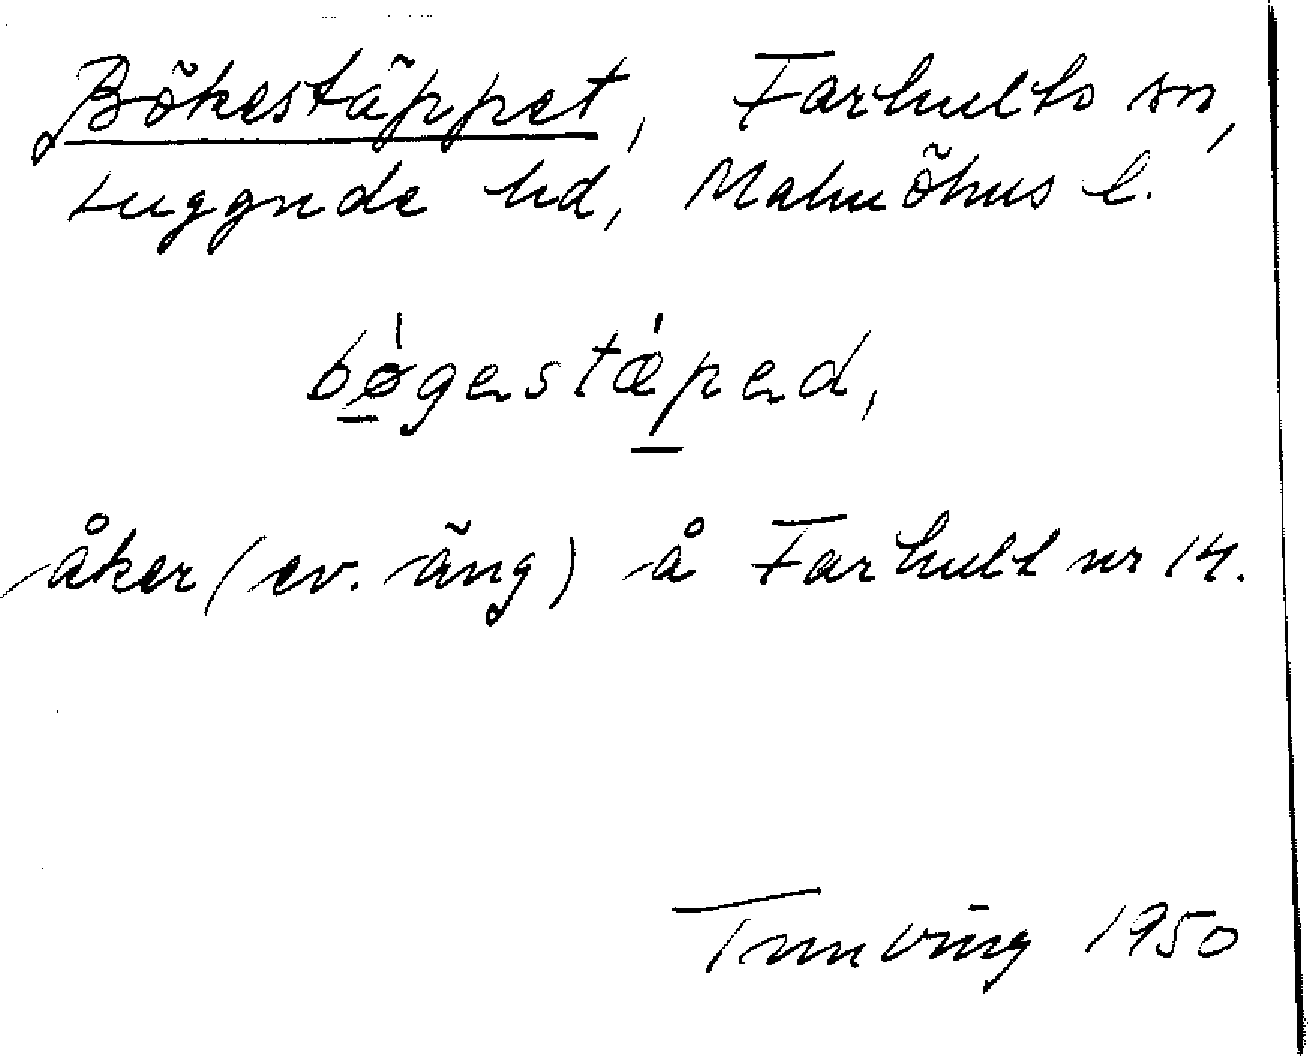 Bökestäppet, Farhults sn,
Luggude hd, Malmöhus l.
bǿ̱gestǽ̱ped,
åker (ev. äng) å Farhult nr 14.
Tunving 1950